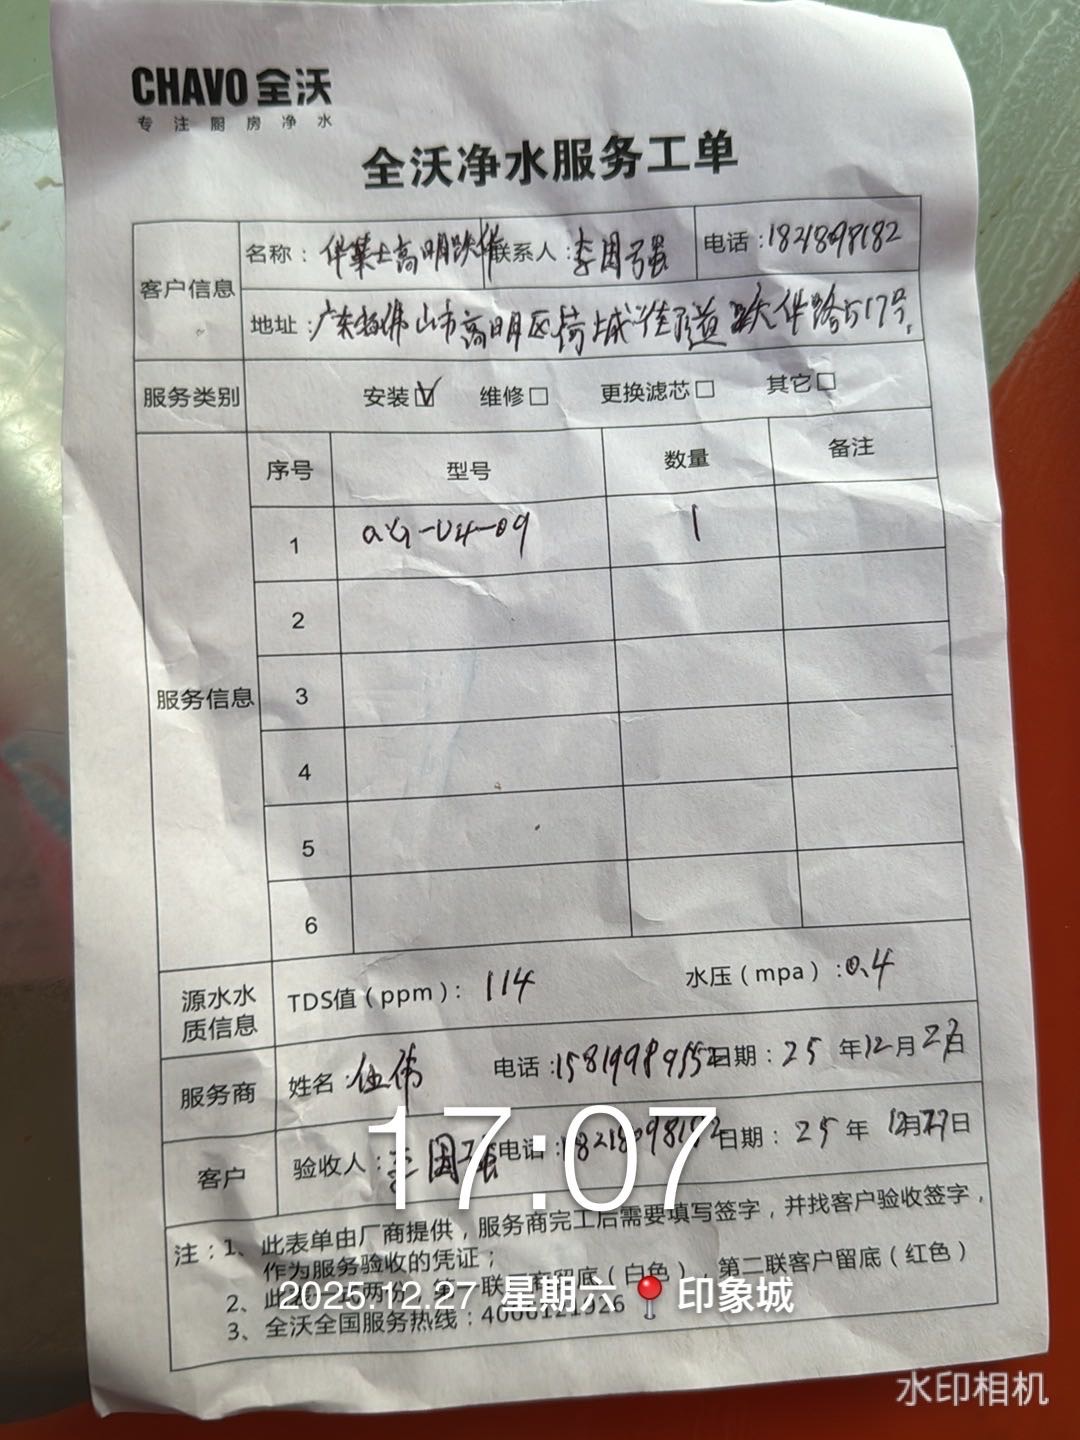 CHAVO 全沃
专注厨房净水
全沃净水服务工单
客户信息
名称： 联系人：李国强 电话：
地址：广东 佛山市高明区荷城街道跃华路517号.
服务类别 安装☑ 维修□ 更换滤芯□ 其它□
服务信息
序号 型号 数量 备注
1 -04-09 1
2
3
4
5
6
源水水质信息
TDS值（ppm）：114 水压（mpa）：0.4
服务商 姓名：伍伟 电话：15819989552 日期：25年12月27日
客户 验收人：李国强 电话： 日期：25年12月27日
17:07
注：1、此表单由厂商提供，服务商完工后需要填写签字，并找客户验收签字，
作为服务验收的凭证；
2、此 两份，第一联 商留底（白色），第二联客户留底（红色）
3、全沃全国服务热线：4006121926
2025.12.27 星期六 📍印象城
水印相机